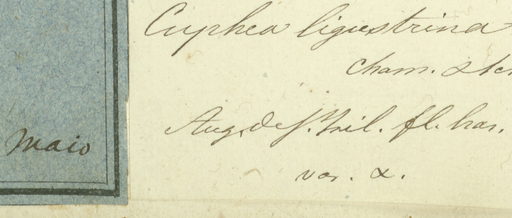 Cuphea ligustrina
Cham. & Sch
Aug. de St. Hil. fl. bras.
var. α.
Maio